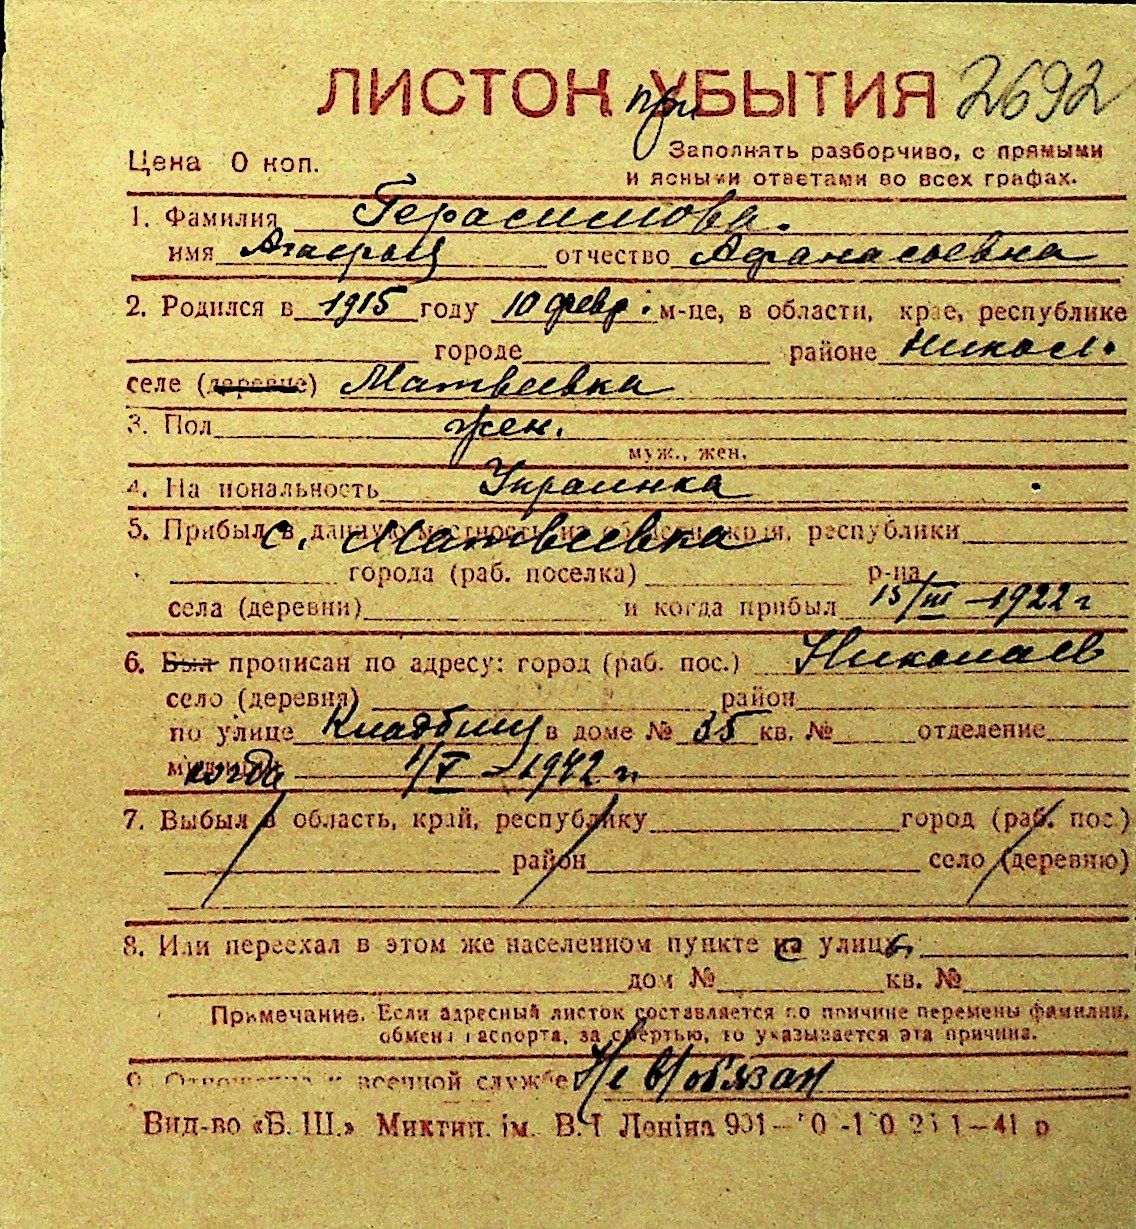 ЛИСТОК при УБЫТИЯ 2692
Цена 0 коп.
Заполнять разборчиво, с прямыми
и ясными ответами во всех графах.
1. Фамилия Герасимова.
имя отчество Афанасьевна
2. Родился в 1915 году 10 февр. м-це, в области, крае, республике
городе районе Никол.
селе (деревне) Матвеевка
3. Пол жен.
муж., жен.
4. На иональность Украинка
5. Прибыл в данную местность из области, края, республики
с. Матвеевка
города (раб. поселка) р-на
села (деревни) и когда прибыл 15/III – 1922 г
6. Был прописан по адресу: город (раб. пос.) Николаев
село (деревня) район
по улице Кладбищ в доме № 35 кв. № отделение
когда 1/V – 1942 г.
7. Выбыл в область, край, республику город (раб. пос.)
район село (деревню)
8. Или переехал в этом же населенном пункте с улицы
дом № кв. №
Примечание. Если адресный листок составляется по причине перемены фамилии,
обмена паспорта, за смертью, то указывается эта причина.
9. Отношение к военной службе Не в/обязан
Вид-во «Б. Ш.» Миктип. ім. В. І Леніна